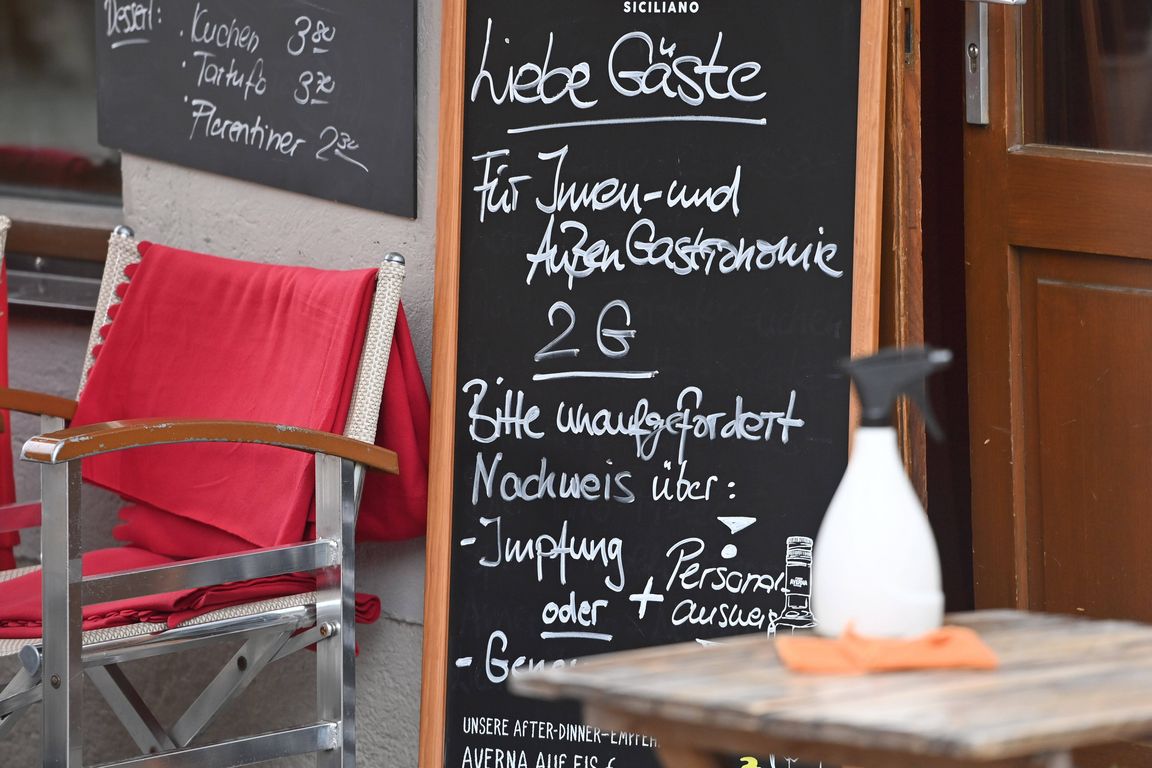 Dessert:
· Kuchen 3 80
· Tartufo 3 70
· Florentiner 2 30
SICILIANO
Liebe Gäste
Für Innen- und
Außen Gastronomie
2 G
Bitte unaufgefordert
Nachweis über:
- Impfung
oder
+ Personal
ausweis
- Gene
UNSERE AFTER-DINNER-EMPFEH
AVERNA AUF EIS
AVERNA